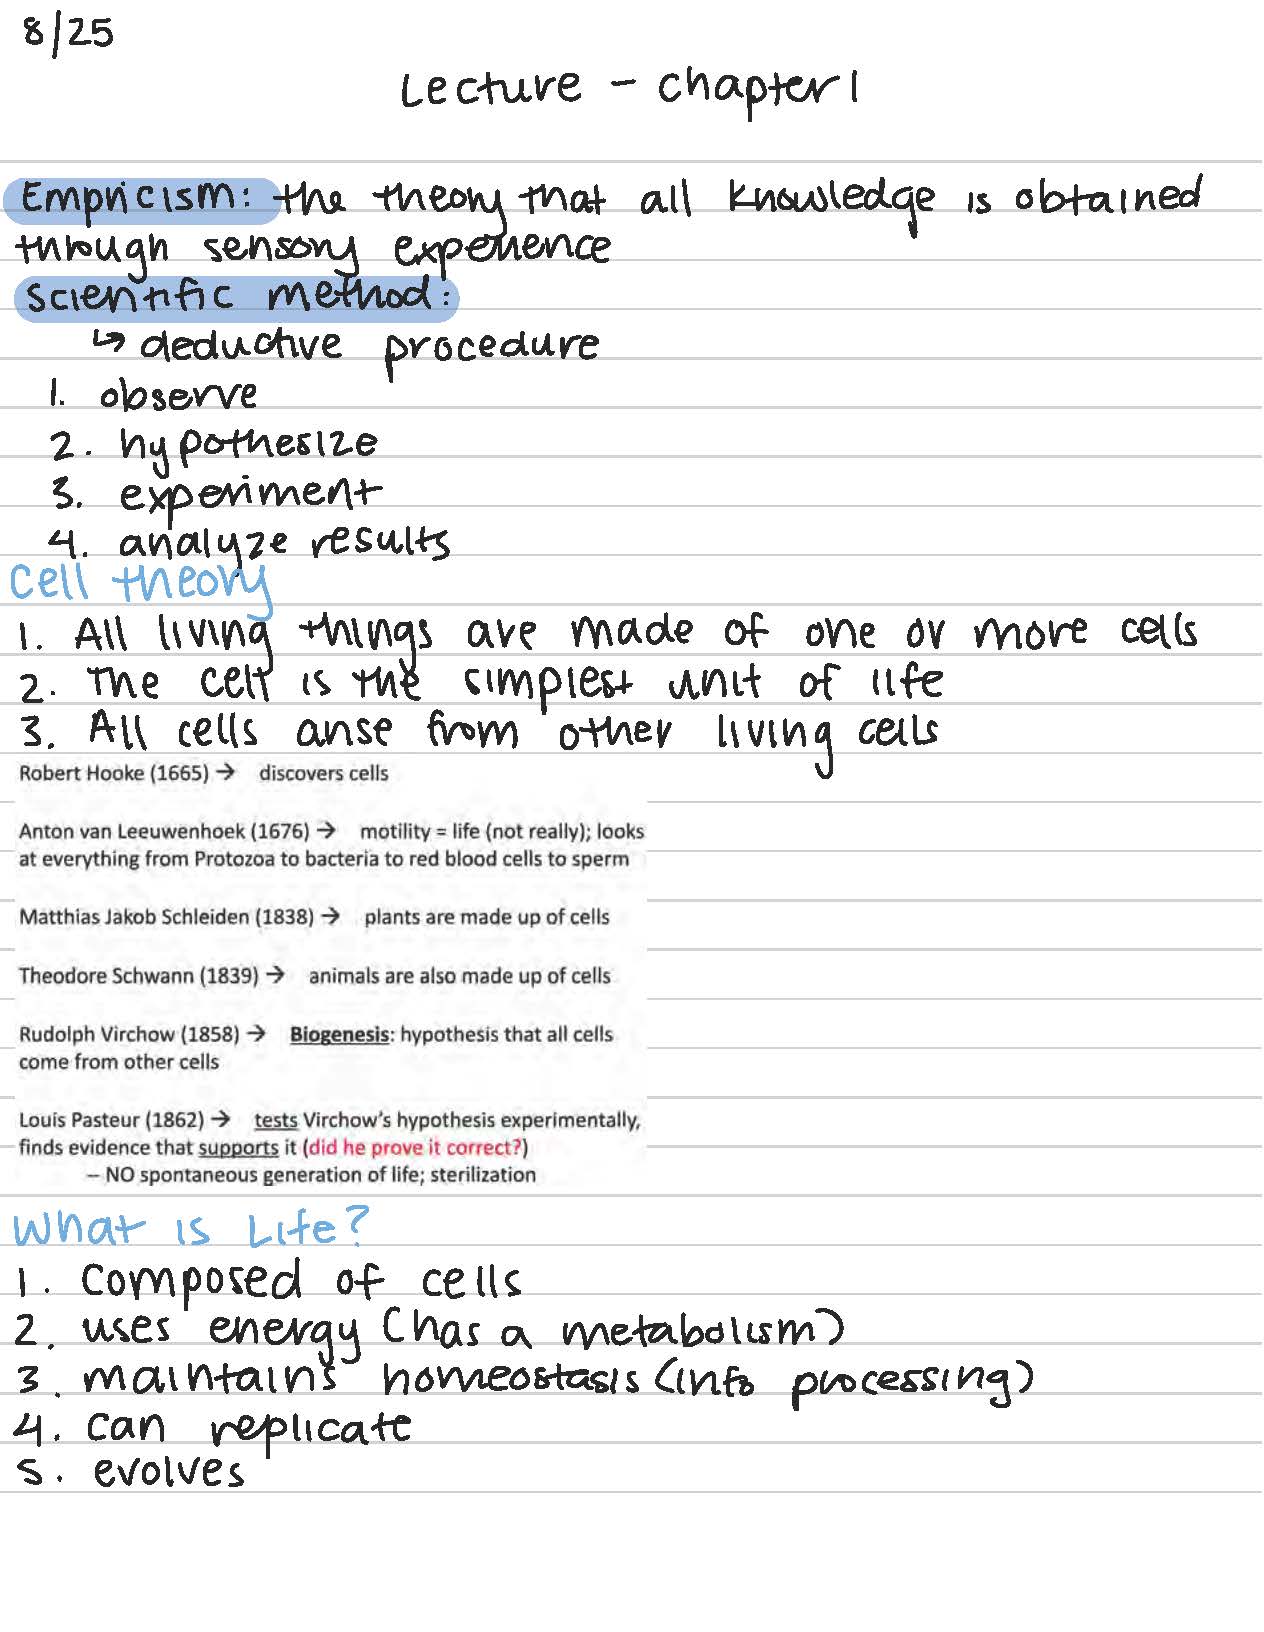 8/25
Lecture - chapter 1
Empricism: the theory that all knowledge is obtained
through sensory experience
scientific method:
↳ deductive procedure
1. observe
2. hypothesize
3. experiment
4. analyze results
cell theory
1. All living things are made of one or more cells
2. The cell is the simplest unit of life
3. All cells arise from other living cells
Robert Hooke (1665) → discovers cells
Anton van Leeuwenhoek (1676) → motility = life (not really); looks
at everything from Protozoa to bacteria to red blood cells to sperm
Matthias Jakob Schleiden (1838) → plants are made up of cells
Theodore Schwann (1839) → animals are also made up of cells
Rudolph Virchow (1858) → Biogenesis: hypothesis that all cells
come from other cells
Louis Pasteur (1862) → tests Virchow's hypothesis experimentally,
finds evidence that supports it (did he prove it correct?)
– NO spontaneous generation of life; sterilization
What is Life?
1. composed of cells
2. uses energy (has a metabolism)
3. maintains homeostasis (info processing)
4. can replicate
5. evolves